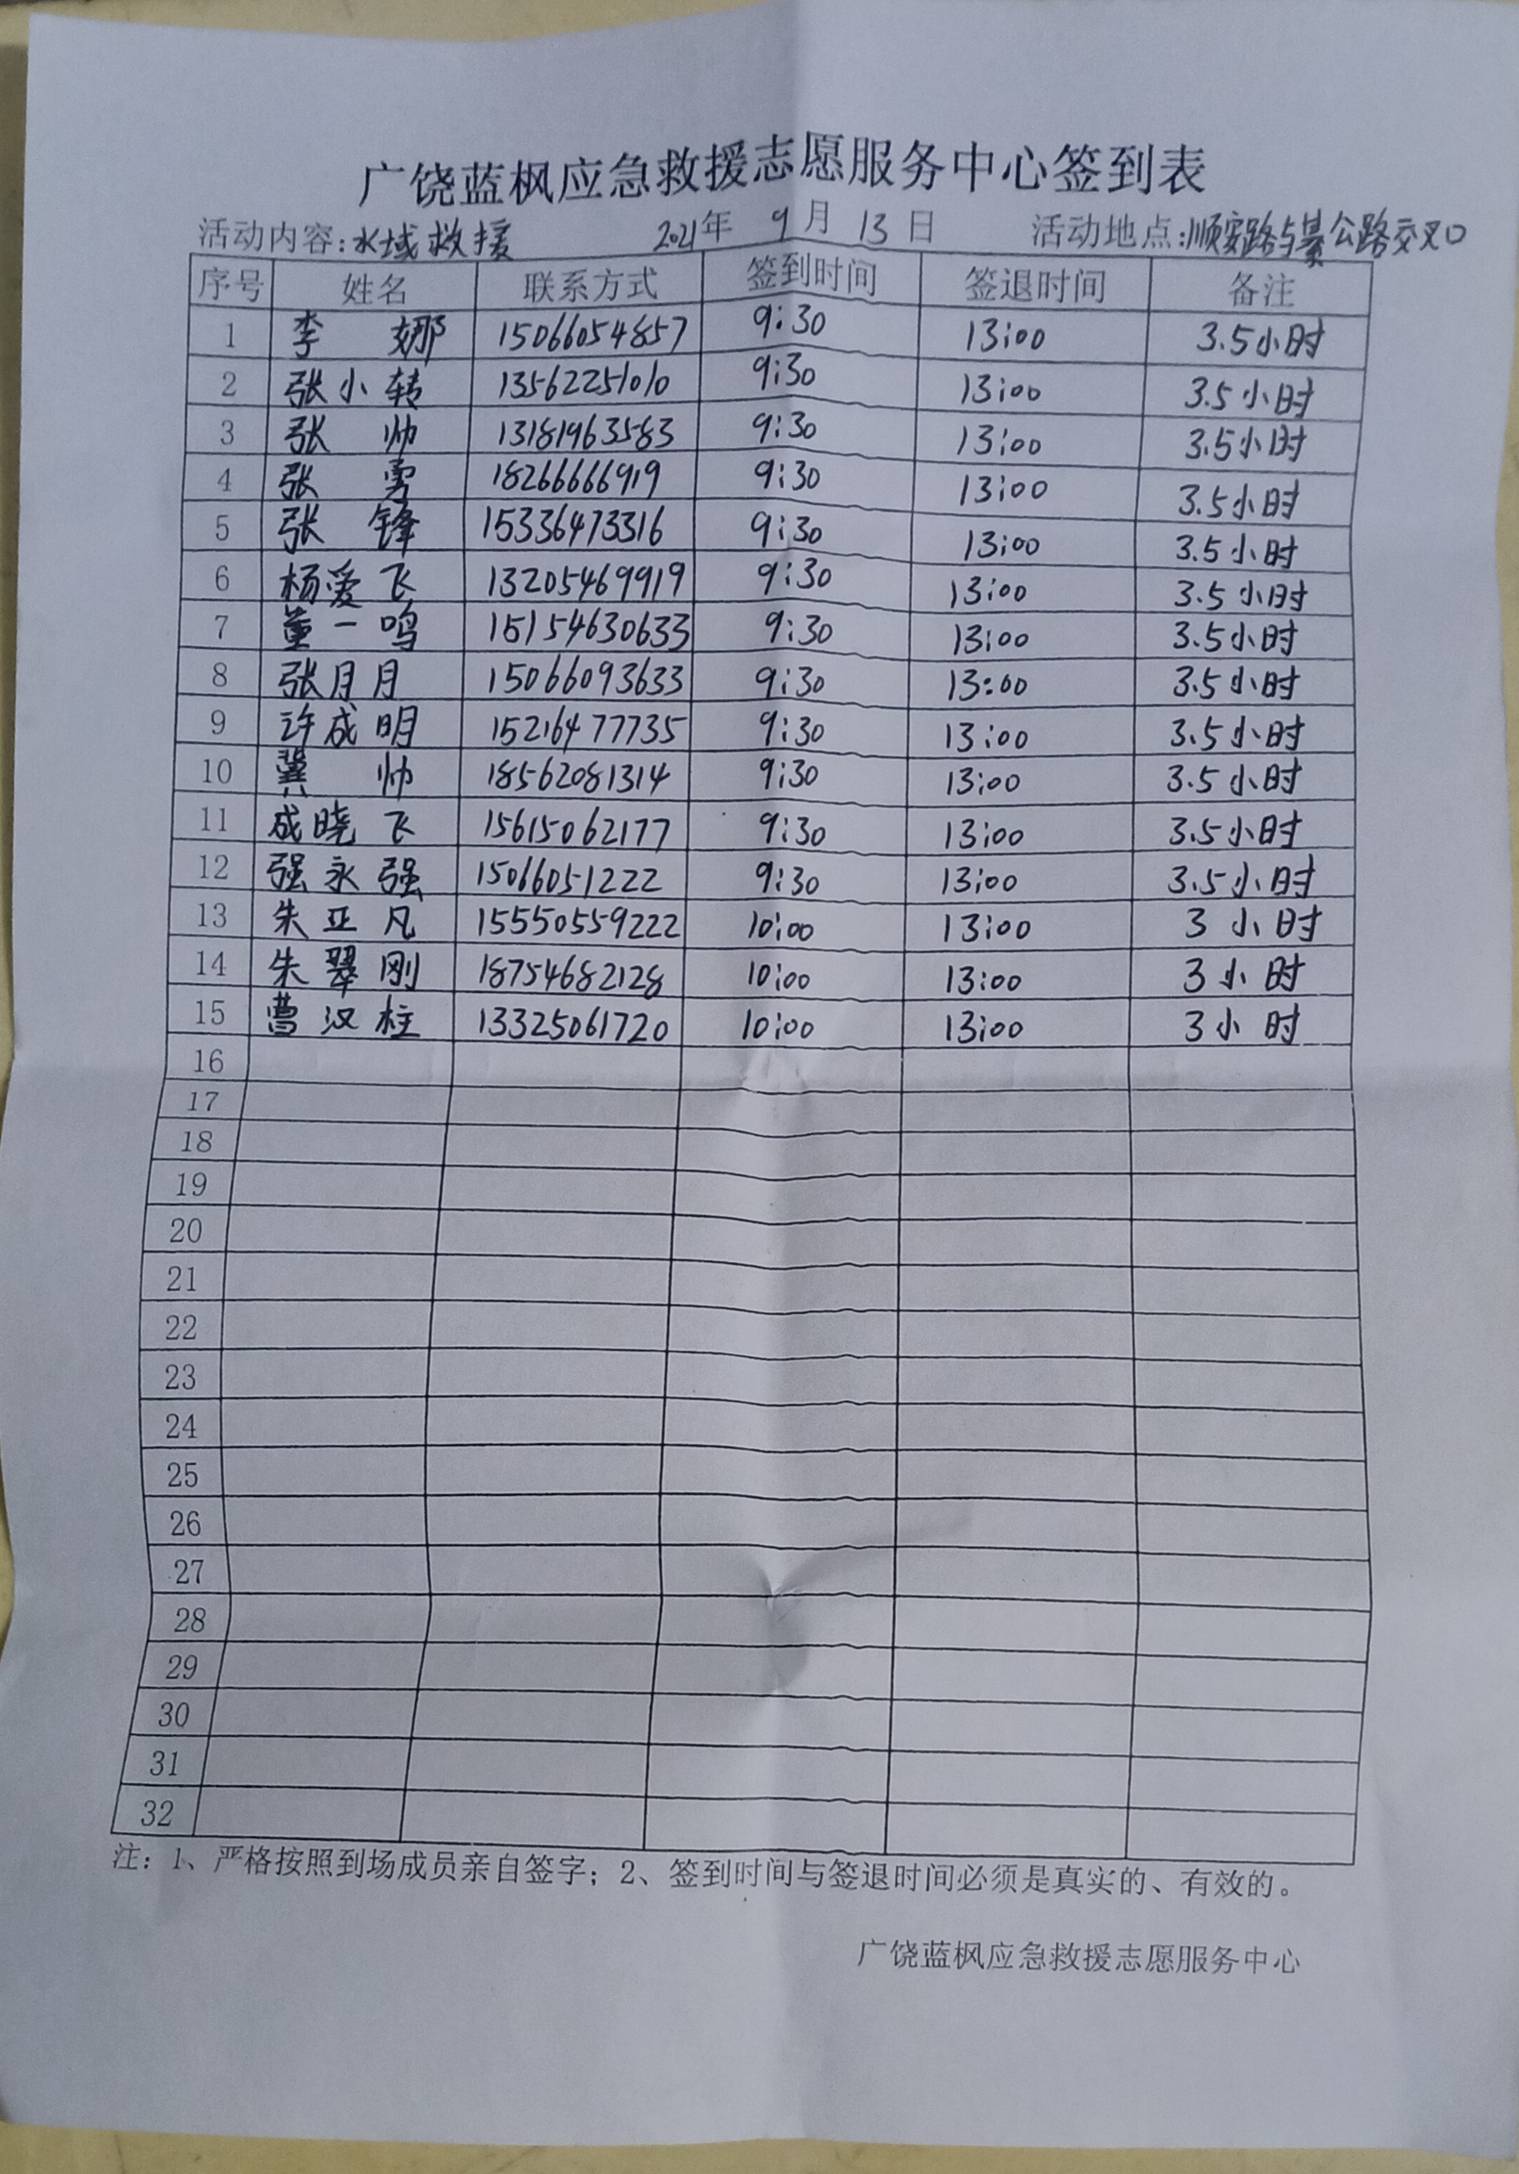 广饶蓝枫应急救援志愿服务中心签到表
活动内容:水域救援 2021年 9月 13日 活动地点:顺安路与綦公路交叉口
序号 姓名 联系方式 签到时间 签退时间 备注
1 李娜 15066054857 9:30 13:00 3.5小时
2 张小转 13562251010 9:30 13:00 3.5小时
3 张帅 13181963583 9:30 13:00 3.5小时
4 张勇 18266666919 9:30 13:00 3.5小时
5 张锋 15336473316 9:30 13:00 3.5小时
6 杨爱飞 13205469919 9:30 13:00 3.5小时
7 董一鸣 15154630633 9:30 13:00 3.5小时
8 张月月 15066093633 9:30 13:00 3.5小时
9 许成明 15216477735 9:30 13:00 3.5小时
10 冀帅 18562081314 9:30 13:00 3.5小时
11 成晓飞 15615062177 9:30 13:00 3.5小时
12 强永强 15066051222 9:30 13:00 3.5小时
13 朱亚凡 15550559222 10:00 13:00 3小时
14 朱翠刚 18754682128 10:00 13:00 3小时
15 曹汉柱 13325061720 10:00 13:00 3小时
16
17
18
19
20
21
22
23
24
25
26
27
28
29
30
31
32
注：1、严格按照到场成员亲自签字；2、签到时间与签退时间必须是真实的、有效的。
广饶蓝枫应急救援志愿服务中心